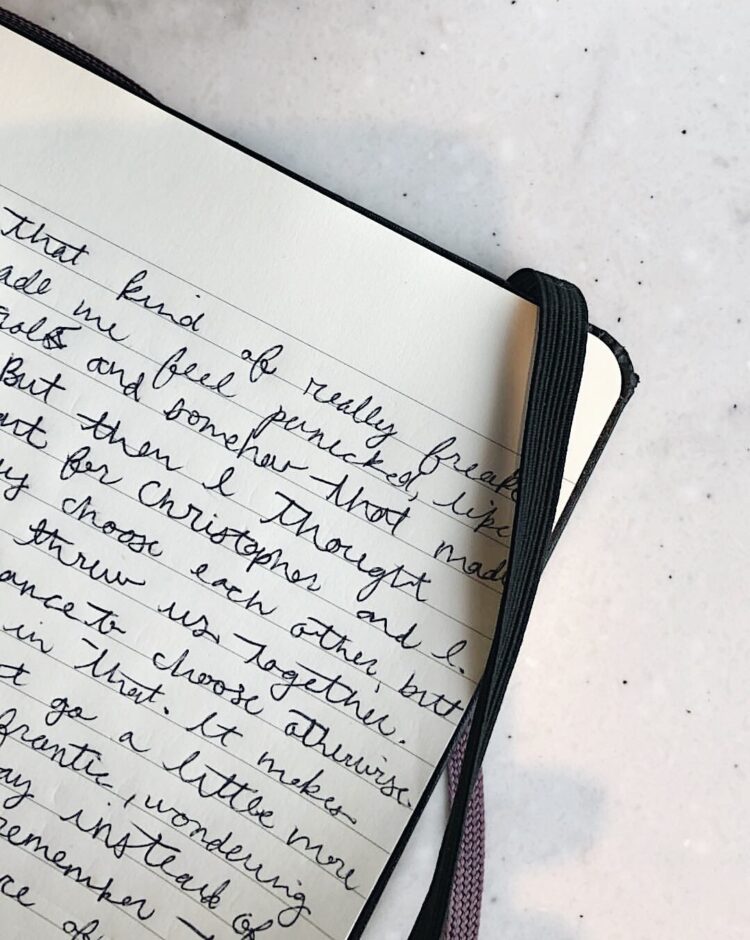 that kind of really freak
ade me feel panicked, like
and somehow that made
But then I thought
art for Christopher and I.
ly choose each other, but
threw us together.
ance to choose otherwise.
in that. It makes
t go a little more
frantic, wondering
ay instead of
remember
ce of